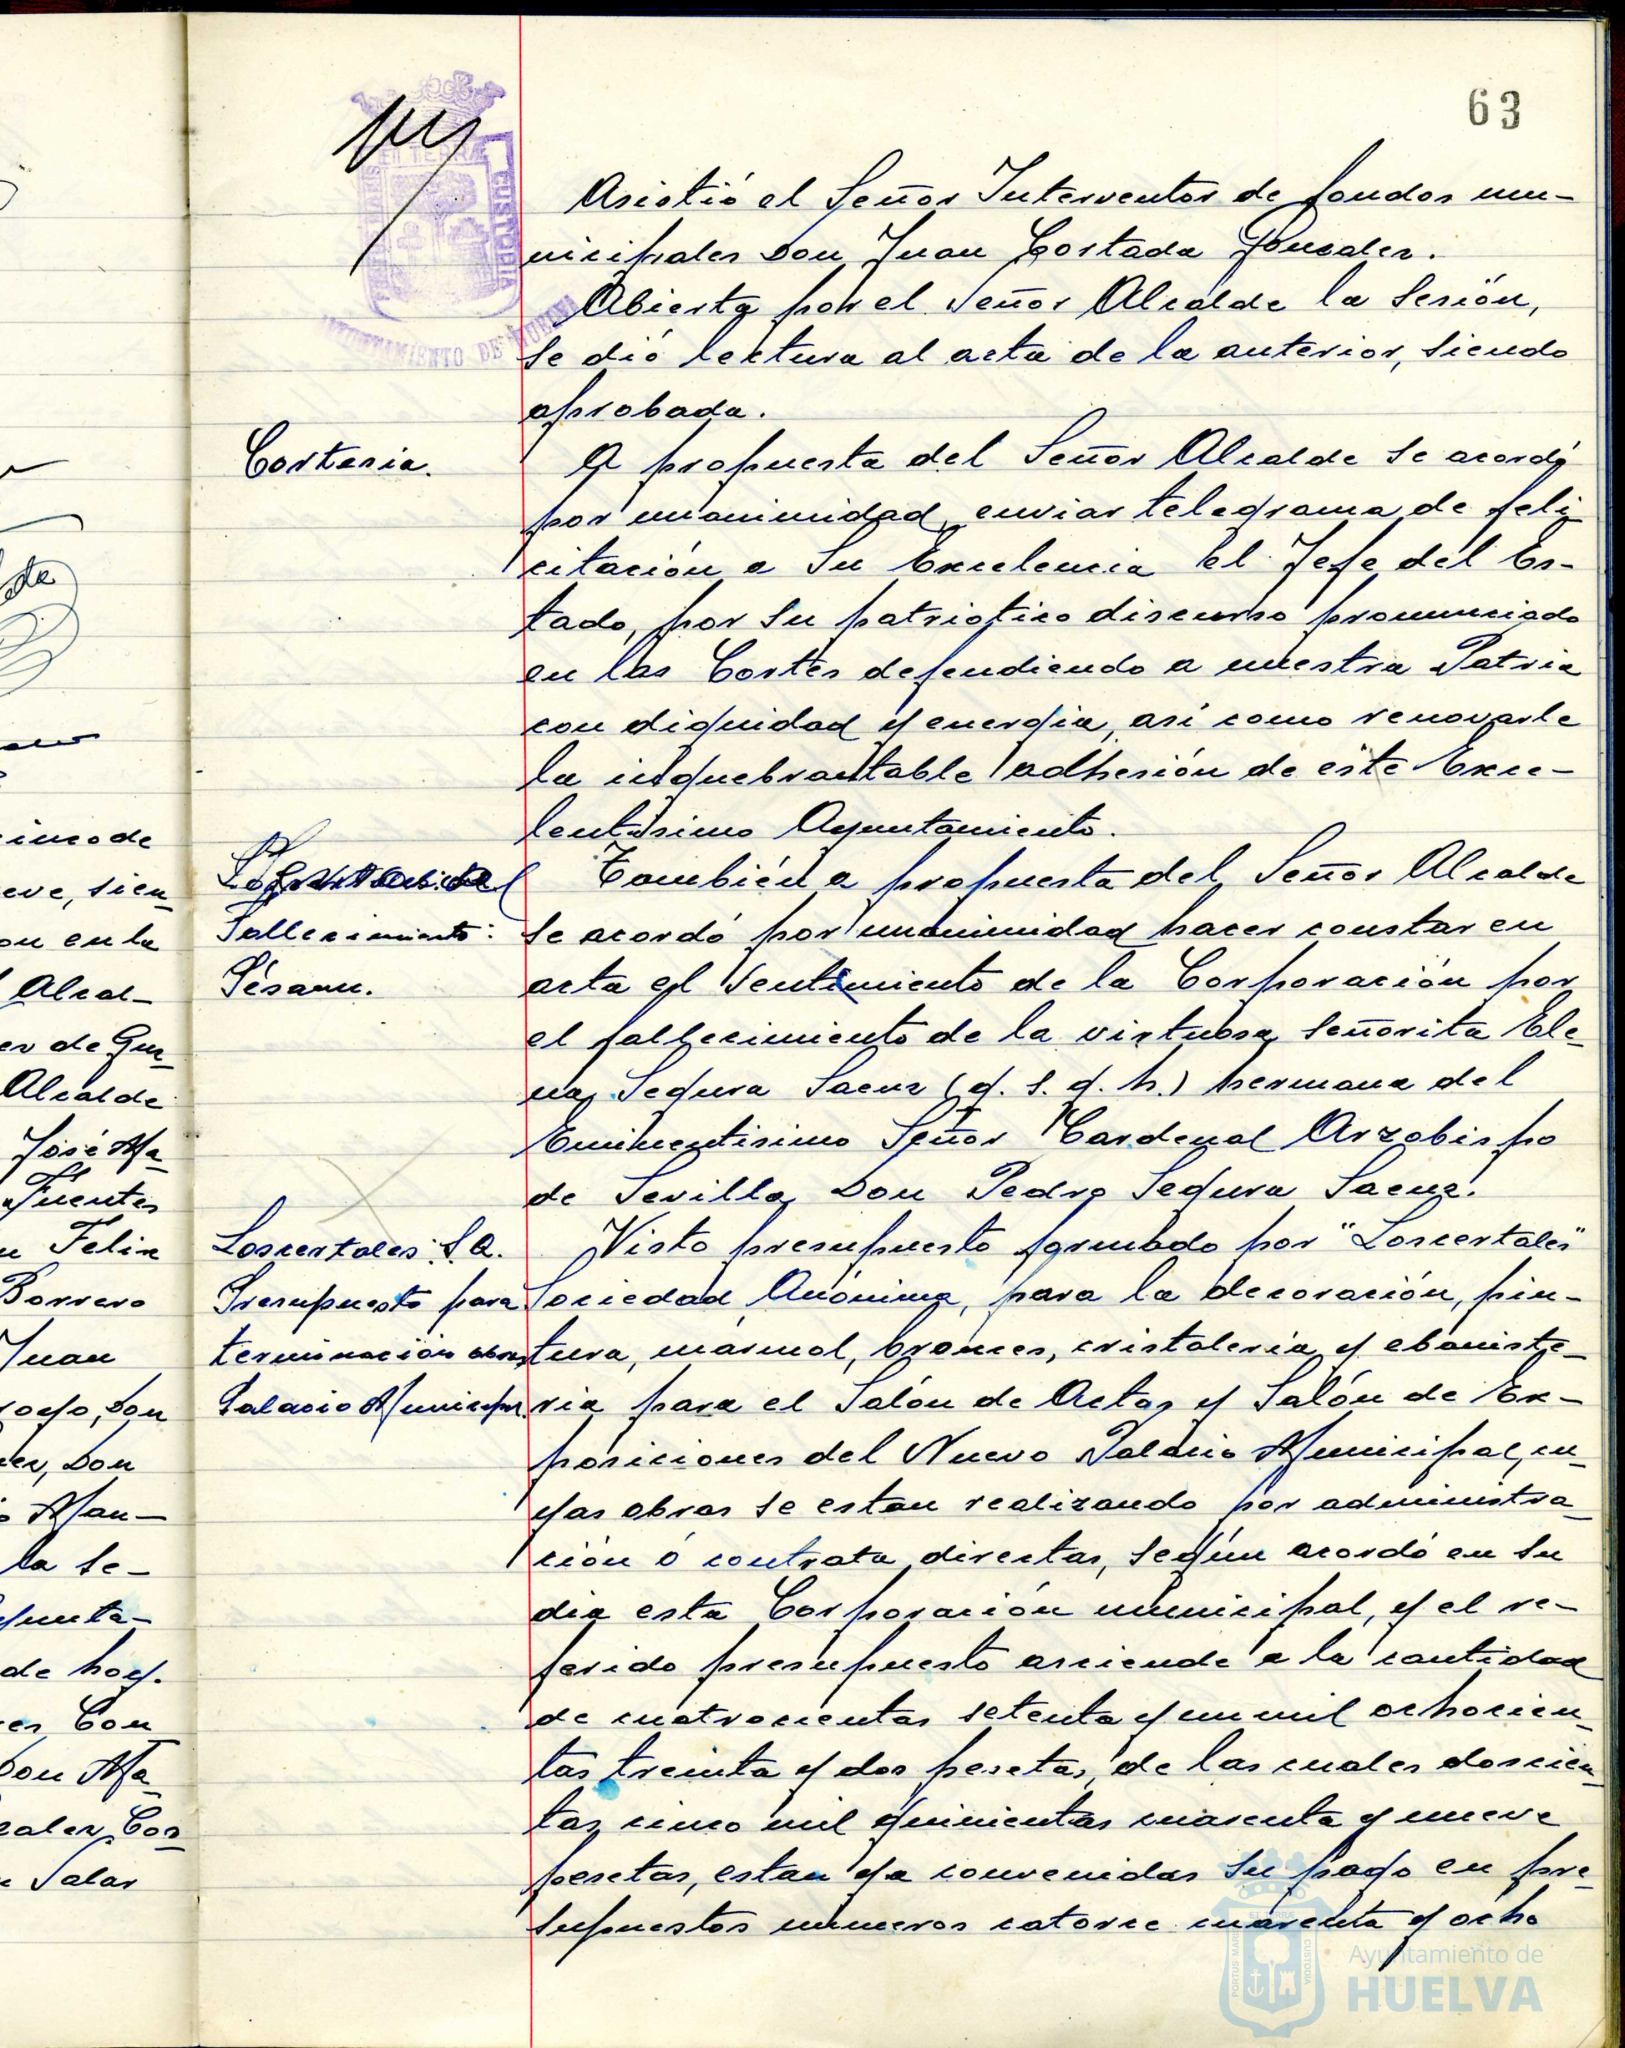 63
Asistió el Señor Interventor de fondos mu-
nicipales Don Juan Cortada Gonzalez.
Abierta por el Señor Alcalde la Sesión,
se dió lectura al acta de la anterior, siendo
aprobada.
Cortesia.
A propuesta del Señor Alcalde se acordó
por unanimidad enviar telegrama de feli-
citación a Su Excelencia el Jefe del Es-
tado, por su patriotico discurso pronunciado
en las Cortes defendiendo a nuestra Patria
con dignidad y energia, así como renovarle
la inquebrantable adhesión de este Exce-
lentisimo Ayuntamiento.
Fallecimiento:
Pésame.
Tambien a propuesta del Señor Alcalde
se acordó por unanimidad hacer constar en
acta el sentimiento de la Corporación por
el fallecimiento de la virtuosa señorita Ele-
na Segura Saenz (q. s. g. h.) hermana del
Eminentisimo Señor Cardenal Arzobispo
de Sevilla Don Pedro Segura Saenz.
Loscertales S.A.
Presupuesto para
terminación obras
Palacio Municipal
Visto presupuesto formado por "Loscertales"
Sociedad Anónima, para la decoración, pin-
tura, marmol, bronces, cristaleria y ebaniste-
ria para el Salón de Actos y Salón de Ex-
posiciones del Nuevo Palacio Municipal, cu-
yas obras se estan realizando por administra-
ción ó contrata directas, según acordó en su
dia esta Corporación municipal, y el re-
ferido presupuesto asciende a la cantidad
de cuatrocientas setenta y un mil ochocien-
tas treinta y dos pesetas, de las cuales doscien-
tas cinco mil quinientas cuarenta y nueve
pesetas, estan ya convenidas su pago en pre-
supuestos numeros catorce cuarenta y ocho
AYUNTAMIENTO DE HUELVA
CUSTODIA
Ayuntamiento de
HUELVA
cinco de
eve, sien-
on en la
Alcal-
er de Gun-
Alcalde
José Ma-
Fuentes
Felix
Borrero
Juan
royo, Don
ez, Don
Man-
la Se-
yunta-
de hoy.
Con
Don Ma-
zalez Cor-
Salar